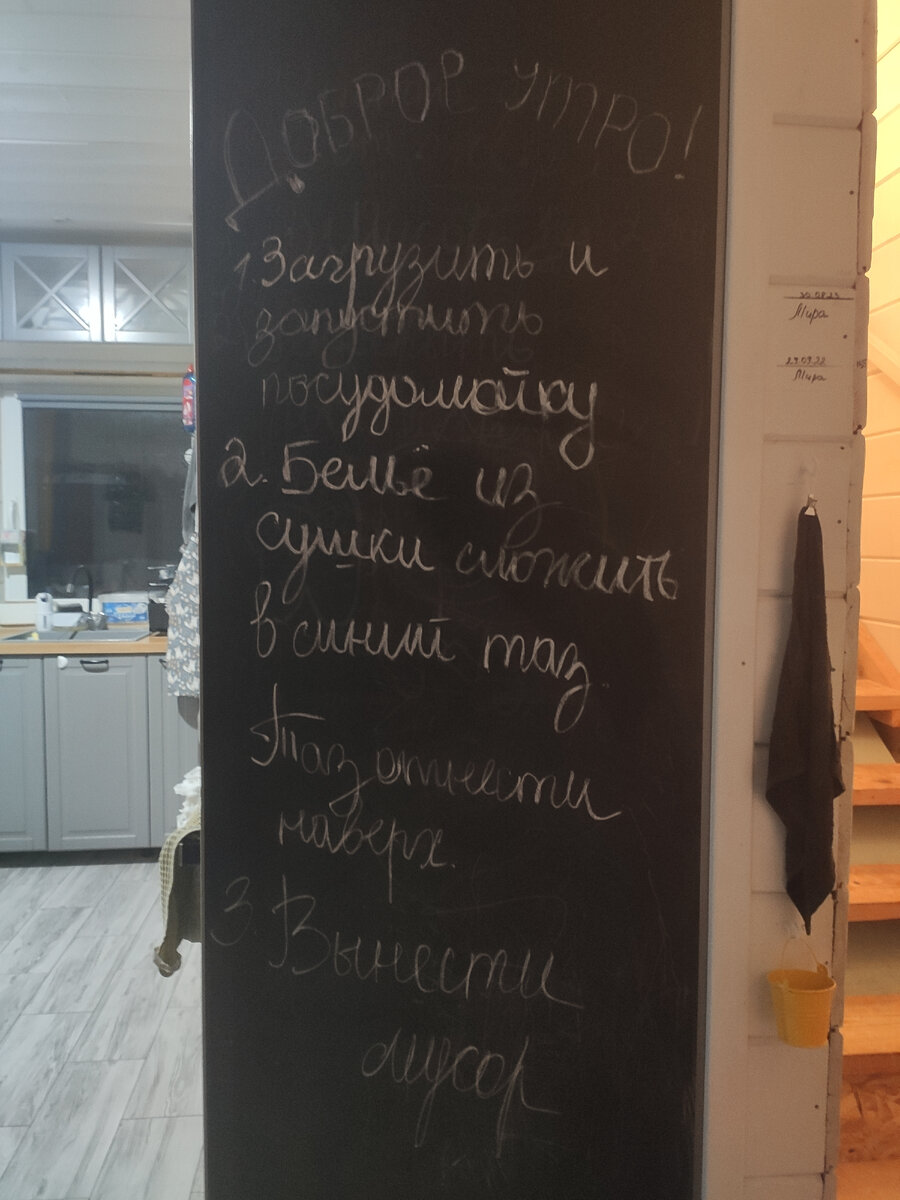 ДОБРОЕ УТРО!
1. Загрузить и
запустить
посудомойку
2. Бельё из
сушки сложить
в синий таз.
Таз отнести
наверх.
3. Вынести
мусор
30.08.23
Мира
29.09.22
Мира